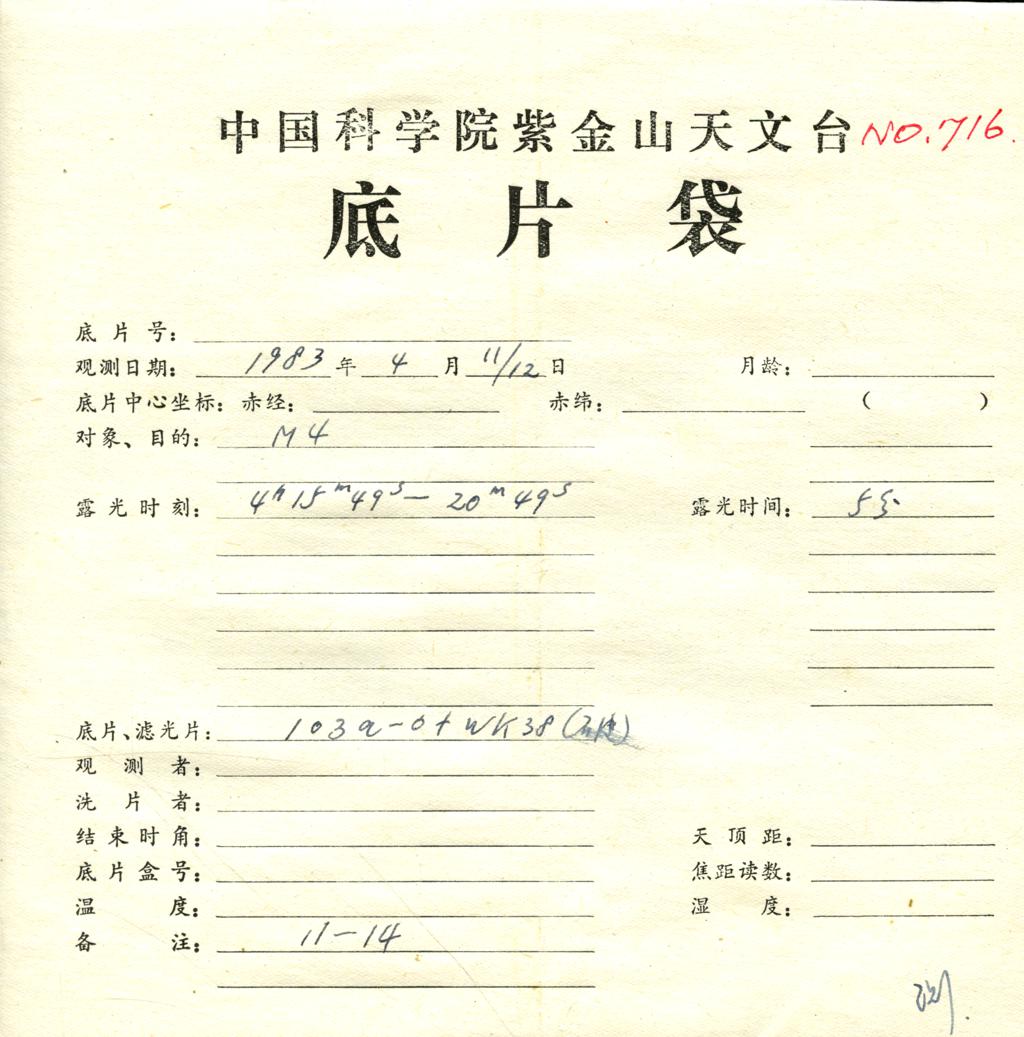 中国科学院紫金山天文台 NO.716.
底片袋
底片号：
观测日期： 1983 年 4 月 11/12 日 月龄：
底片中心坐标：赤经： 赤纬： （ ）
对象、目的： M4
露光时刻： 4h15m49s— 20m49s 露光时间： 5分
底片、滤光片： 103a-O+WK38
观测者：
洗片者：
结束时角： 天顶距：
底片盒号： 焦距读数：
温度： 湿度：
备注： 11-14
测